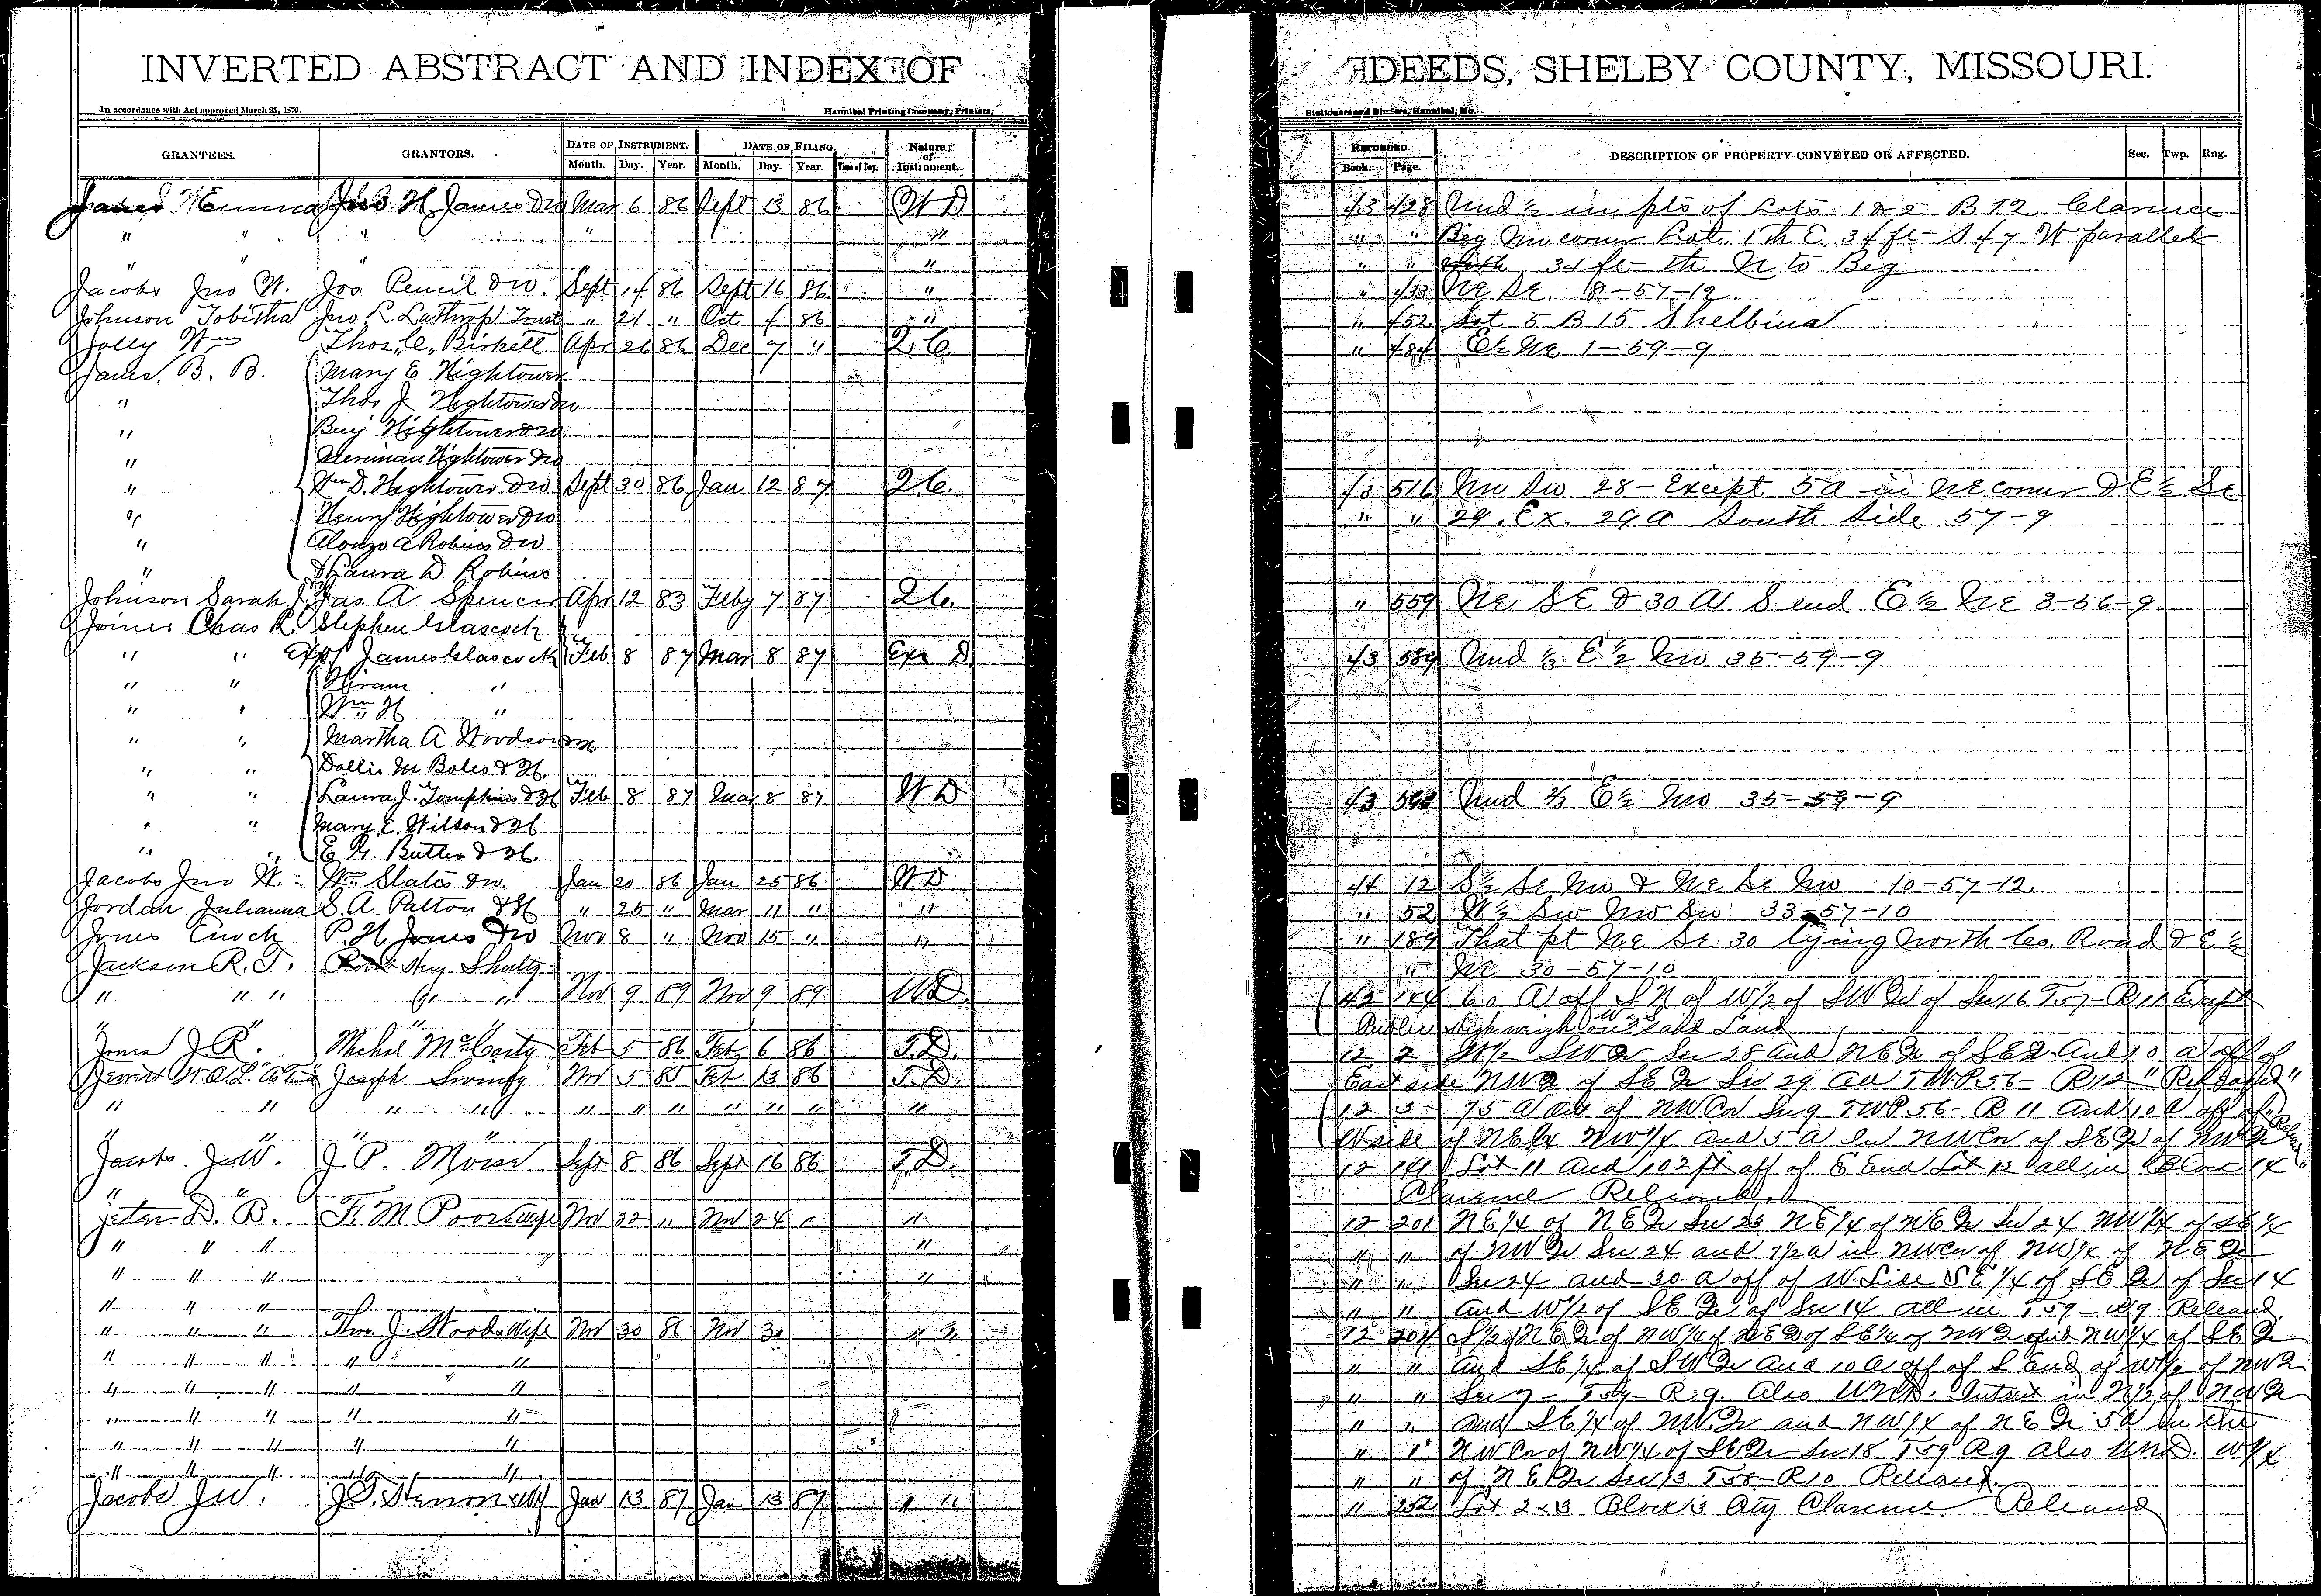 INVERTED ABSTRACT AND INDEX OF DEEDS, SHELBY COUNTY, MISSOURI.
In accordance with Act approved March 25, 1870. Hannibal Printing Company, Printers, Stationers and Binders, Hannibal, Mo.
GRANTEES. GRANTORS. DATE OF INSTRUMENT. DATE OF FILING Nature of Instrument. RECORDED. DESCRIPTION OF PROPERTY CONVEYED OR AFFECTED. Sec. Twp. Rng.
Month. Day. Year. Month. Day. Year. Time of Day. Book. Page.
James H. James & w Mar 6 86 Sept 13 86 W D 43 428 Und ½ in pts of Lots 1 & 2 B 12 Clarence
" " " " " " " Beg Nw corner Lot 1 th E. 34 ft S 47 W parallel
" " " " 34 ft th N to Beg
Jacobs Jno W. Jos Pencil & w. Sept 14 86 Sept 16 86 " " 433 Ne Se. 18-57-12
Johnson Tobitha Jno L. Lathrop Trust " 21 " Oct 4 86 " " 452 Lot 5 B 15 Shelbina
Jolly Wm Thos. C. Birkell Apr 26 86 Dec 7 " Q.C. " 484 E½ Ne 1-59-9
James, B. B. Mary E Hightower
" Thos J Hightower & w
" Benj Hightower & w
" Merriman Hightower & w
" Wm D. Hightower & w Sept 30 86 Jan 12 87 Q.C. 43 516 Nw Sw 28 - Except 5a in Ne corner & E½ Se
" Henry Hightower & w " " 29. Ex. 29 A South Side 57-9
" Alonzo A Robins & w
" & Laura D Robins
Johnson Sarah J. Jas A Spencer Apr 12 83 Feby 7 87 Q.C. " 559 Ne Se & 30 A S end E½ Ne 3-56-9
Joiner Chas R. Stephen Glascock
" " Ex of James Glascock Feb 8 87 Mar 8 87 Exr D 43 589 Und ⅓ E½ Nw 35-59-9
" " Hiram "
" " Wm H "
" " Martha A Woodson
" " Dollie M Boles & H.
" " Laura J. Tompkins & H Feb 8 87 Mar 8 87 W D 43 Und ⅔ E½ Nw 35-59-9
" " Mary E. Wilson & H
" " E. G. Butler & H.
Jacobs Jno W. Wm Slater & w. Jan 20 86 Jan 25 86 W D 44 12 S½ Se Nw & Ne Se Nw 10-57-12
Jordan Julianna S. A. Patton & H " 25 " Mar 11 " " " 52 W½ Sw Nw Sw 33-57-10
Jones Enoch P. H. Jones & w Nov 8 " Nov 15 " " " 189 That pt Ne Se 30 lying North Co. Road & E½
Jackson R. T. Hug Shultz " Ne 30-57-10
" " " " Nov 9 89 Nov 9 89 W D 42 144 60 A off S N of W½ of SW Qr of Sec 16 T57-R11 Except
" " " " Public Highweigh on said Land
Jones J. R. Michel McCarty Feb 5 86 Feb 6 86 T. D. 12 2 W½ SW Qr Sec 28 and NE Qr of SE Qr And 10 a off of
Joseph Nov 5 85 Feb 13 86 T. D. East side NW Qr of SE Qr Sec 29 all TWP 56-R12
" " " " " " " " " " " 12 3 75 a NW Cor Sec 9 TWP 56-R 11 And 10 a off of
" " " " W side of NE ¼ NW ¼ and 5 a in NW Cor of SE Qr of NW Qr
Jacobs J. W. J. P. Moise Sept 8 86 Sept 16 86 T. D. 12 141 Lot 11 and 102 ft off of E End Lot 12 all in Block 14
" " Clarence Released
Jeter D. B. F. M Poor & wife Nov 22 " Nov 24 " " 12 201 NE ¼ of NE Qr Sec 23 NE ¼ of NE Qr Sec 24 NW ¼ of SE ¼
" " " " " " of NW Qr Sec 24 and 7½ a in NW Cor of NW ¼ of NE Qr
" " " " " " Sec 24 and 30 a off of W Side SE ¼ of SE Qr of Sec 14
" " " " " and W½ of SE Qr of Sec 14 all in T59-R9. Released
" " " Thos. J. Woods & Wife Nov 30 86 Nov 30 " " 12 204 S½ NE Qr of NW ¼ of NE Qr of SE ¼ of NW Qr and NW ¼ of SE Qr
" " " " " " " and SE ¼ of SW Qr and 10 a off of S End of W½ of NW Qr
" " " " " " " Sec 7 - T59-R9. Also Und. Intrest in N½ of NW Qr
" " " " " " " and SE ¼ of NW Qr and NW ¼ of NE Qr 5 a in the
" " " " " " " NW Cor of NW ¼ of SE Qr Sec 18 T59 R9 also Und. W ¼
" " " " " " " of NE Qr Sec 13 T58-R10 Released.
Jacobs J W. Jan 13 87 Jan 13 87 " " " 252 Lot 2 & 3 Block 3 Clarence Released